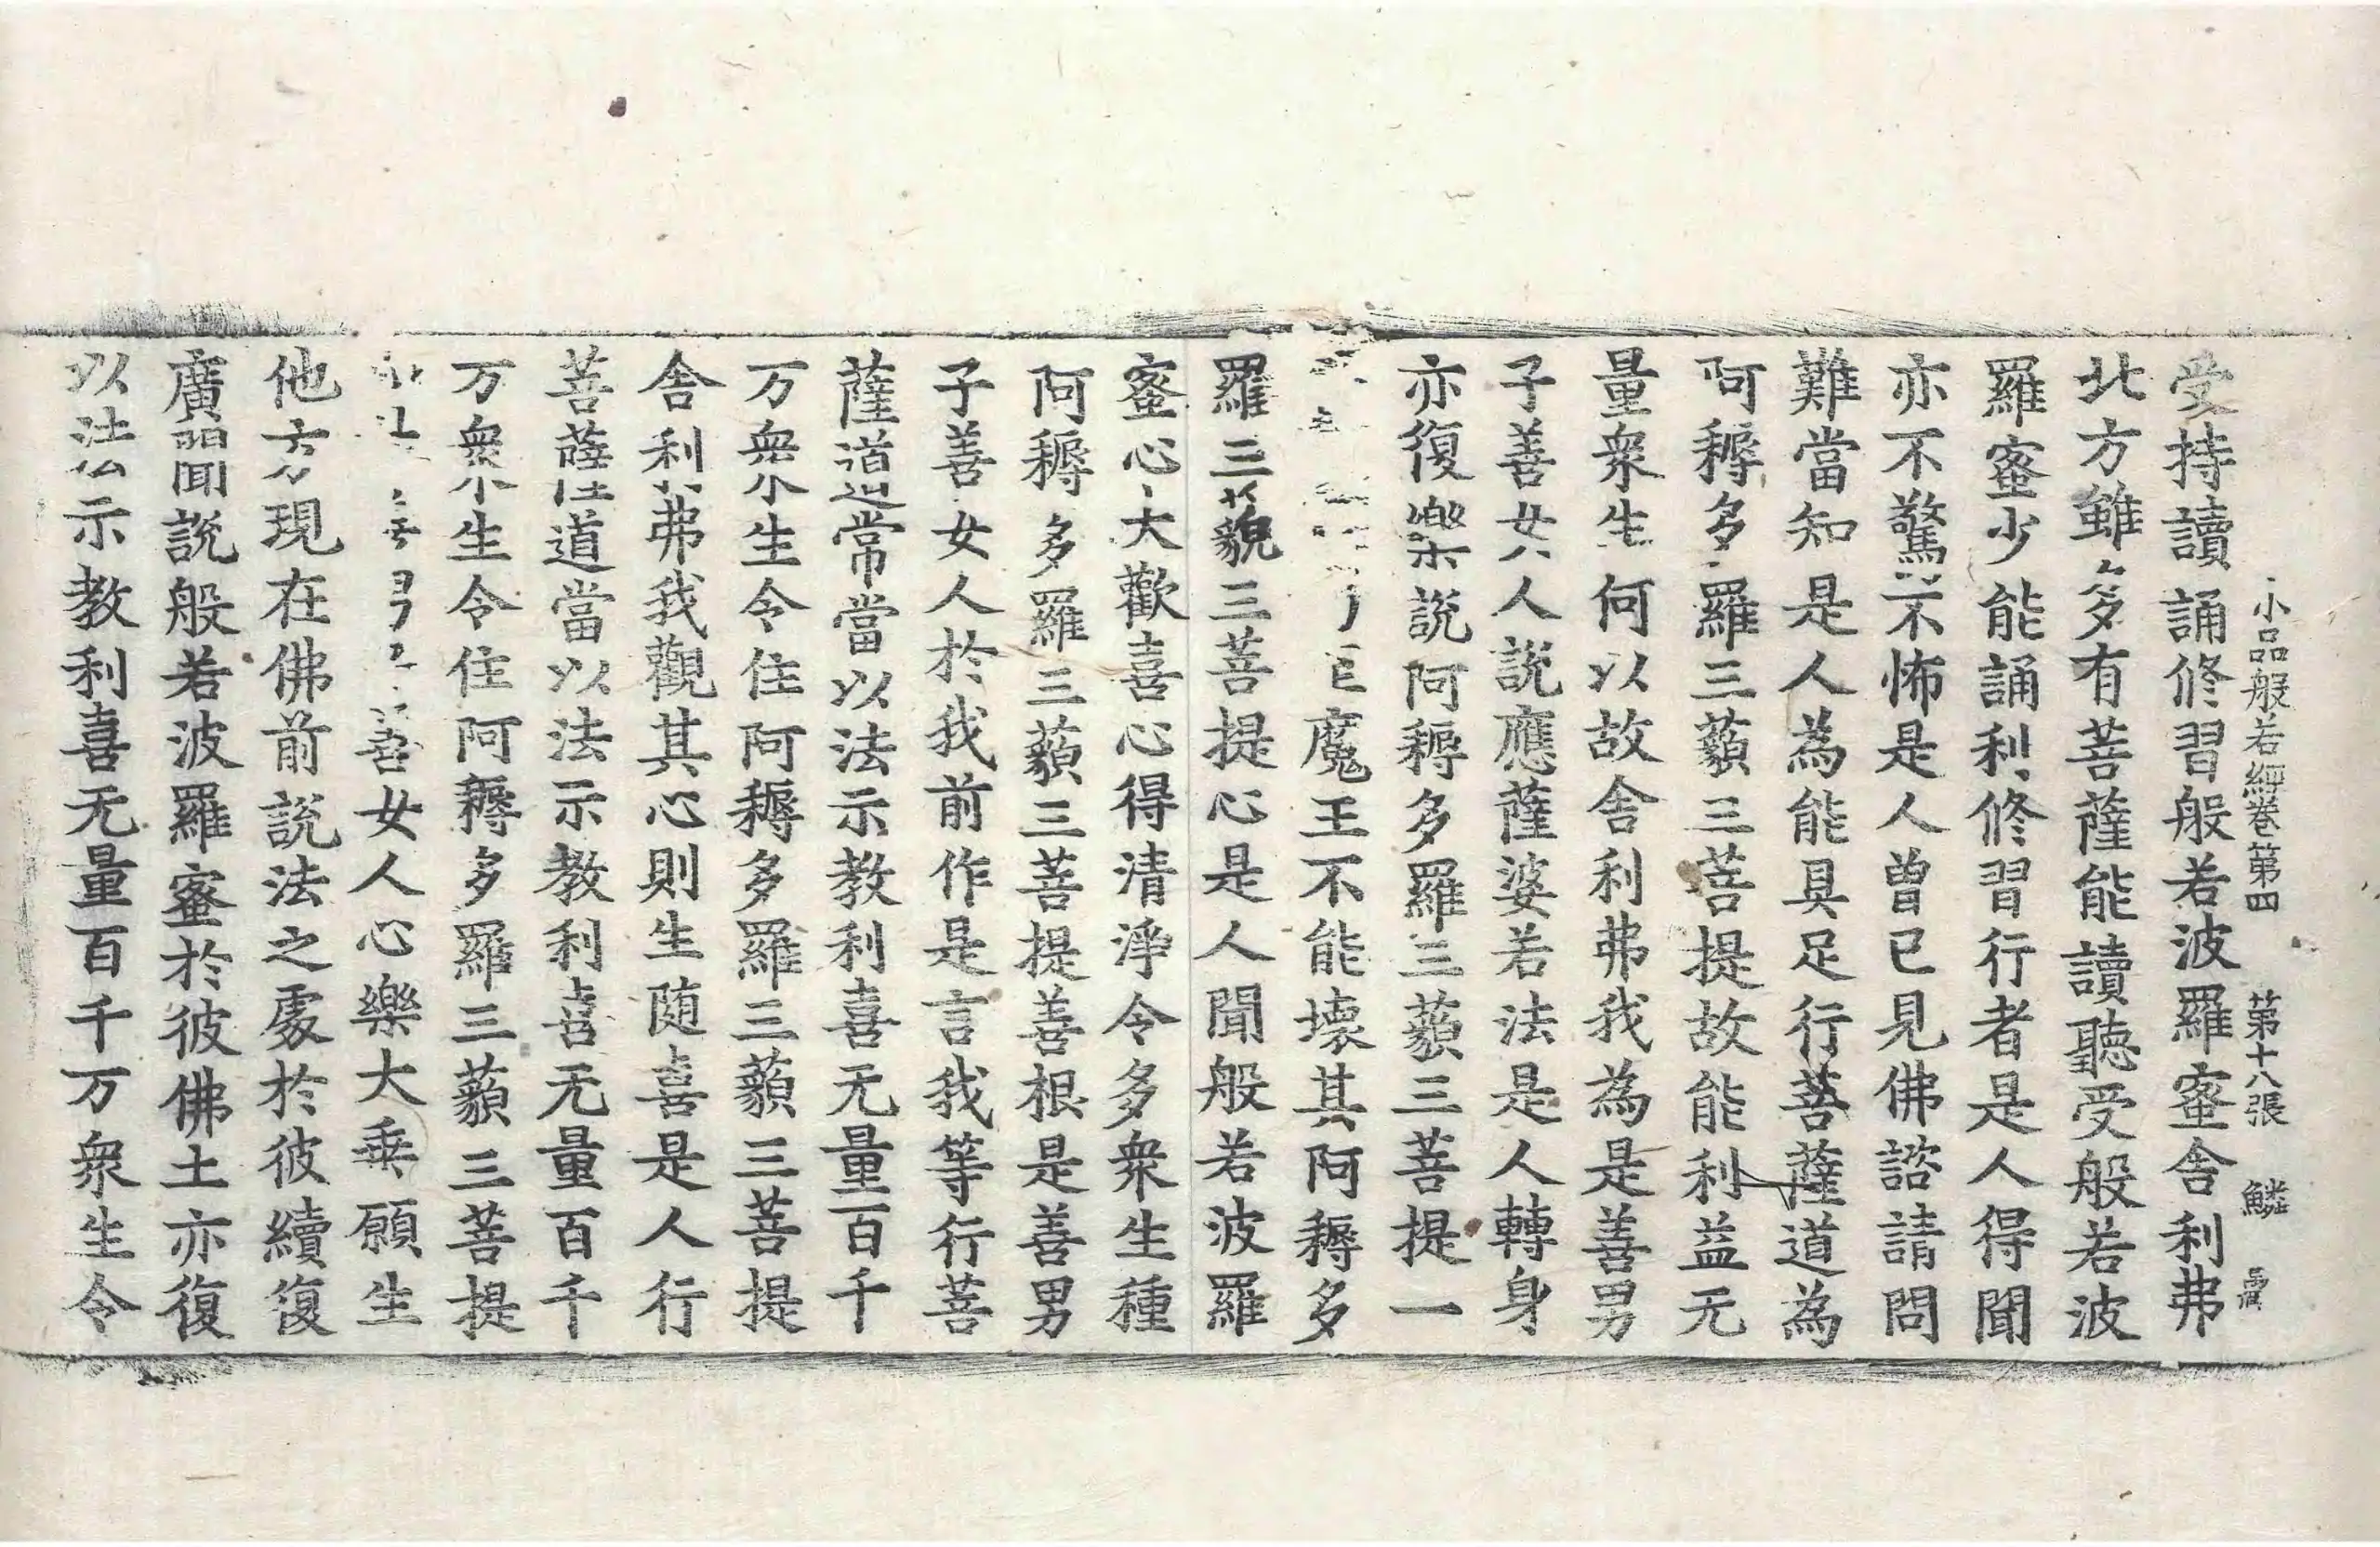 小品般若經卷第四　第十八張　鱗
受持讀誦修習般若波羅蜜舍利弗
北方雖多有菩薩能讀聽受般若波
羅蜜少能誦利修習行者是人得聞
亦不驚不怖是人曽已見佛諮請問
難當知是人為能具足行菩薩道為
阿耨多羅三藐三菩提故能利益无
量衆生何以故舍利弗我為是善男
子善女人說應薩婆若法是人轉身
亦復樂說阿耨多羅三藐三菩提一
魔王不能壞其阿耨多
羅三藐三菩提心是人聞般若波羅
蜜心大歡喜心得清淨令多衆生種
阿耨多羅三藐三菩提善根是善男
子善女人於我前作是言我等行菩
薩道常當以法示教利喜无量百千
万衆生令住阿耨多羅三藐三菩提
舍利弗我觀其心則生随喜是人行
菩薩道當以法示教利喜无量百千
万衆生令住阿耨多羅三藐三菩提
善女人心樂大乗願生
他方現在佛前說法之處於彼續復
廣聞說般若波羅蜜於彼佛土亦復
以法示教利喜无量百千万衆生令